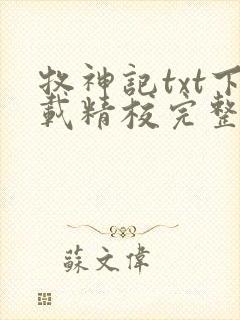 牧神記txt下
載精校完整
蘇文偉